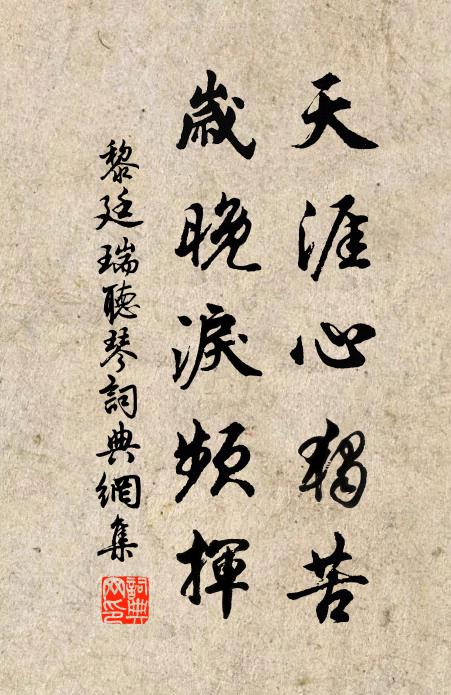 天涯心獨苦
歲晚淚頻揮
黎廷瑞聽琴詞典網集
詞典网印